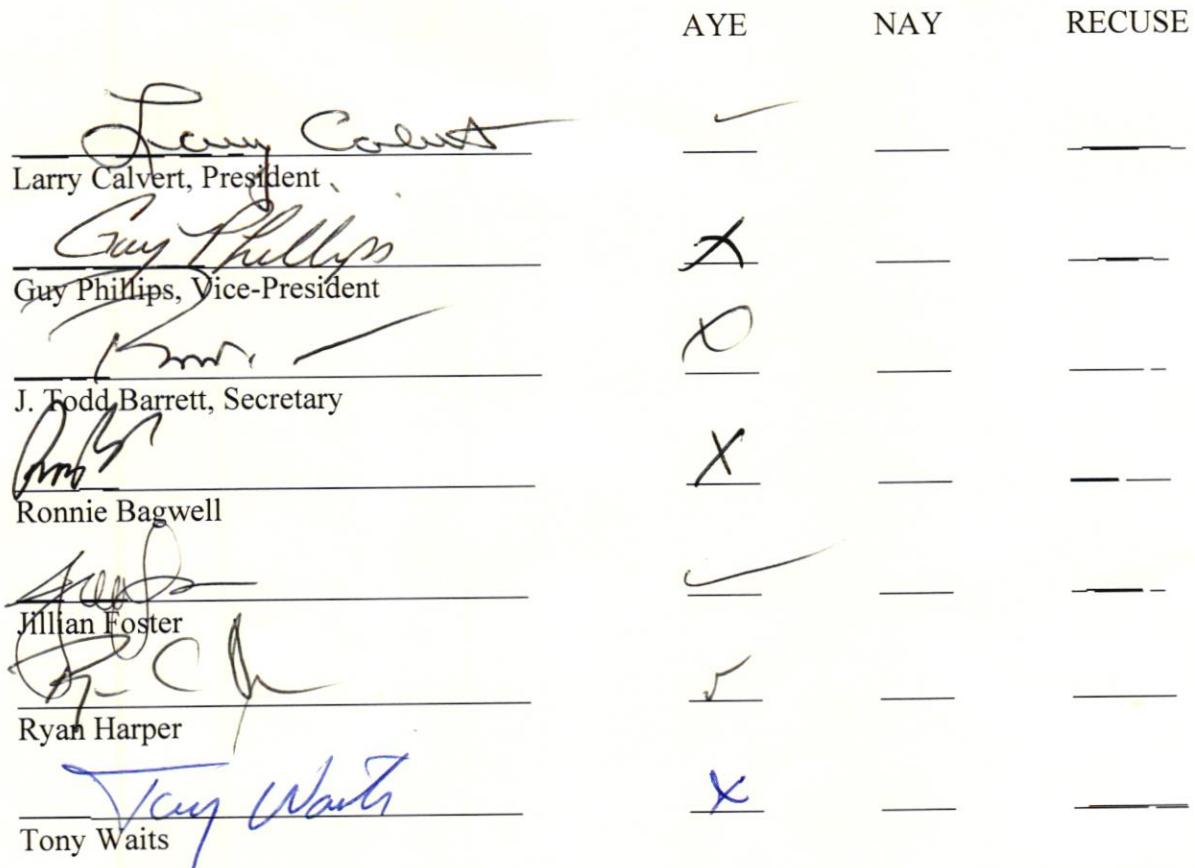 AYE NAY RECUSE
Larry Calvert ✓
Larry Calvert, President
Guy Phillips X
Guy Phillips, Vice-President
X
J. Todd Barrett, Secretary
X
Ronnie Bagwell
✓
Jillian Foster
✓
Ryan Harper
Tony Waits X
Tony Waits